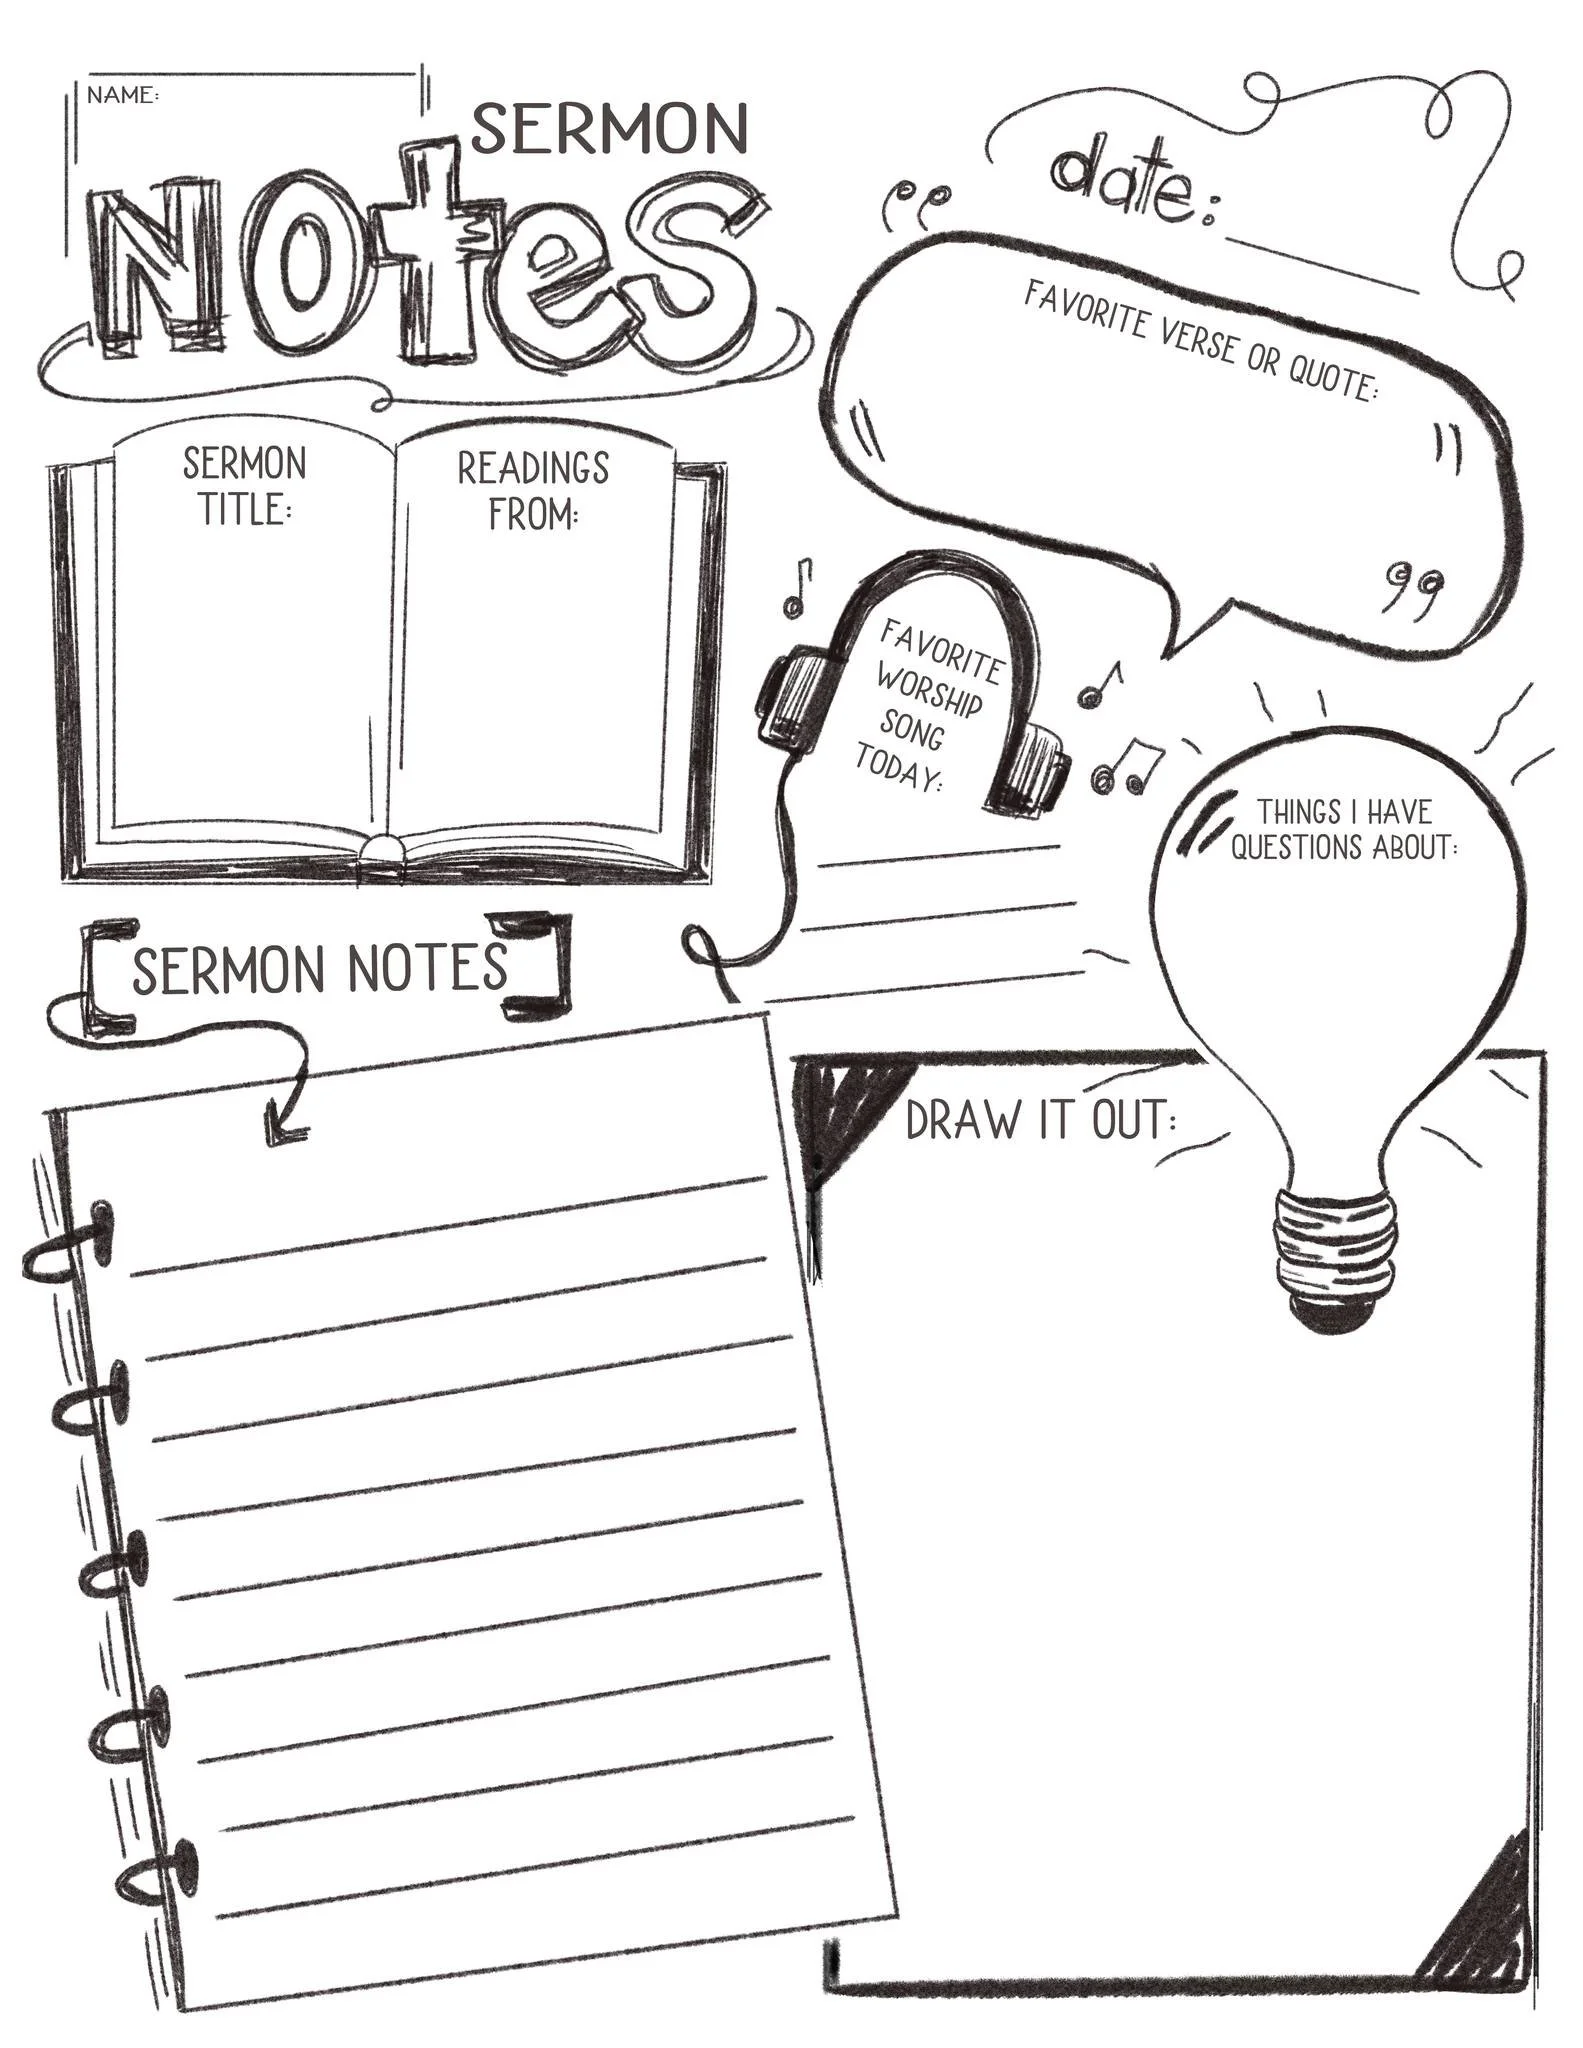 NAME:
SERMON
NOtes
date:
FAVORITE VERSE OR QUOTE:
SERMON
TITLE:
READINGS
FROM:
FAVORITE
WORSHIP
SONG
TODAY:
THINGS I HAVE
QUESTIONS ABOUT:
SERMON NOTES
DRAW IT OUT: